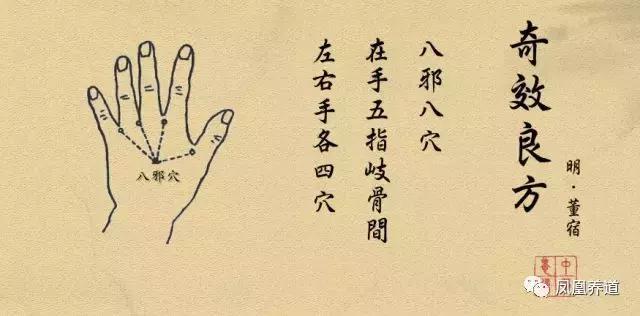 奇效良方
明·董宿
八邪八穴
在手五指歧骨間
左右手各四穴
八邪穴
中
凤凰养道